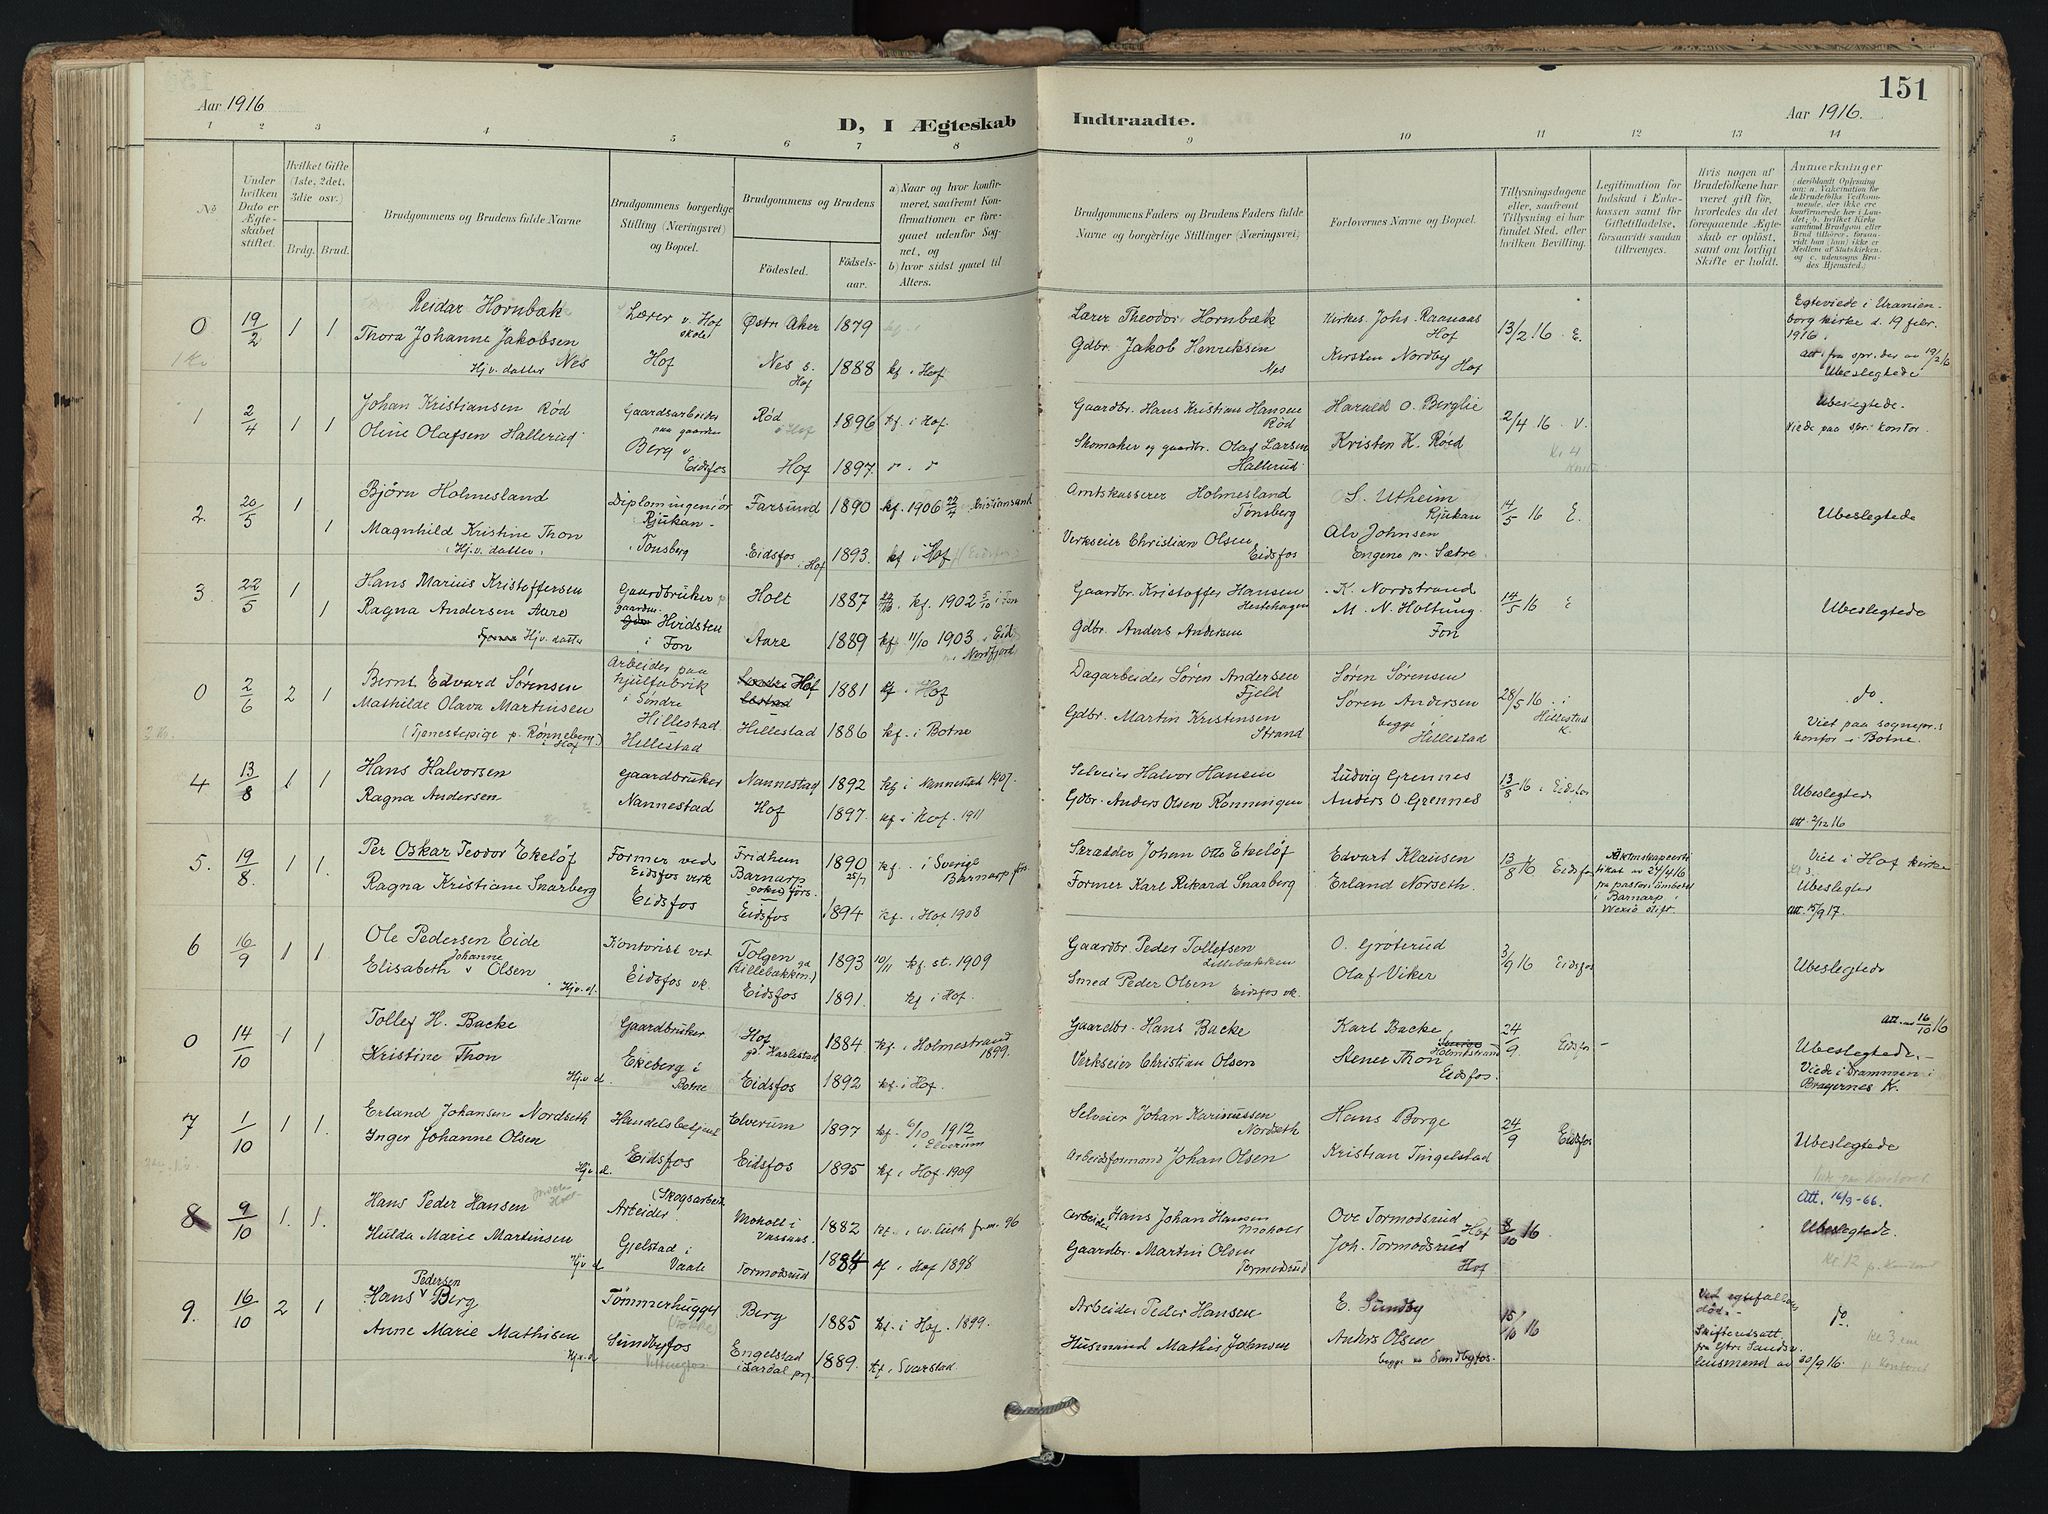 151
Aar 1916
D, I Ægteskab
Indtraadte.
Aar 1916.
1 2 3 4 5 6 7 8 9 10 11 12 13 14
No
Under hvilken Dato er Ægteskabet stiftet.
Hvilket Gifte (1ste, 2det, 3die osv.)
Brdg. Brud.
Brudgommens og Brudens fulde Navne
Brudgommens borgerlige Stilling (Næringsvei) og Bopæl.
Brudgommens og Brudens
Fødested.
Fødselsaar.
a) Naar og hvor konfirmeret, saafremt Konfirmationen er foregaaet udenfor Sognet, og
b) hvor sidst gaaet til Alters.
Brudgommens Faders og Brudens Faders fulde Navne og borgerlige Stillinger (Næringsvei)
Forlovernes Navne og Bopæl.
Tillysningsdagene eller, saafremt Tillysning ei har fundet Sted, efter hvilken Bevilling.
Legitimation for Indskud i Enkekassen samt for Giftetilladelse, forsaavidt saadan tiltrænges.
Hvis nogen af Brudefolkene har været gift før, hvorledes da det foregaaende Ægteskab er opløst, samt om lovligt Skifte er holdt.
Anmærkninger
0 19/2 1 1 Reidar Hornbæk Lærer v. Hof skole Østre Aker 1879 Lærer Theodor Hornbæk Kirkes. Johs. Raanaas Hof 13/2 16 E. Egteviede i Uranienborg kirke d. 19 febr. 1916.
Thora Johanne Jakobsen Nes Hj.v. datter Hof Nes s. Hof 1888 kf. i Hof Gdbr. Jakob Henriksen Nes Kirsten Nordby Hof Att. fra spr. der av 19/2 16 Ubeslegtede
1 2/4 1 1 Johan Kristiansen Rød Gaardsarbeider paa gaarden Rød i Hof 1896 kf. i Hof. Gaardbr. Hans Kristian Hansen Rød Harald O. Berglie 2/4 16 V. Ubeslegtede. Viede paa spr. kontor.
Oline Olafsen Hallerud Berg v Eidsfos Hof 1897. Skomaker og gaardbr. Olaf Larsen Hallerud Kristen K. Røed
2. 20/5 1 Bjørn Holmesland Diplomingeniør Rjukan Farsund 1890 kf. 1906 22/4 Kristianssand Amtskasserer Holmesland Tønsberg S. Utheim Rjukan 14/5 16 E. Ubeslegtede
1 Magnhild Kristine Thon (Hj.v. datter) i Tønsberg Eidsfos i Hof 1893. kf i Hof (Eidsfos) Verkseier Christian Olsen Eidsfos Alv Johnsen Engene p. Sætre
3. 22/5 1 Hans Marius Kristoffersen Gaardbruker p gaarden Holt 1887 kf. 1902 5/10 i Fon Gaardbr. Kristoffer Hansen Hestehagen K. Nordstrand 14/5 16 E Ubeslegtede
1 Ragna Andersen Aare Hj.v. datter Hvidsten i Fon Aare 1889 kf. 11/10 1903 i Eid Nordfjord Gdbr. Anders Andersen M. N. Holtung. Fon
0 2/6 2 1 Bernt Edvard Sørensen Arbeider paa hjulfabrik i Søndre Hillestad Hof 1881 kf i Hof Dagarbeider Søren Andersen Fjeld Søren Sørensen 28/5 16 i Hillestad K. do.
Mathilde Olava Martinsen (Tjenestepige p. Rønneberg i Hof) Hillestad Hillestad 1886 kf. i Botne Gdbr. Martin Kristensen Strand Søren Andersen begge i Hillestad Viet paa sognepr.s kontor i Botne.
4 13/8 1 1 Hans Halvorsen Gaardbruker Nannestad 1892 kf i Nannestad 1907. Selveier Halvor Hansen Ludvig Grennes 13/8 16 i Eidsfos Ubeslegtede
Ragna Andersen Nannestad Hof 1897. kf i Hof. 1911 Gdbr. Anders Olsen Rønningen Anders O. Grennes att. 2/12 16
5. 19/8. 1 1 Per Oskar Teodor Ekeløf Former ved Eidsfos verk Fridhem Barnarp sokn förs. 1890 25/7 kf. i Sverige Barnarp förs. Skrædder Johan Otto Ekeløf Edvart Klausen 13/8 16 Eidsfos Viet i Hof kirke
Ragna Kristiane Snarberg Eidsfos Eidsfos 1894 kf. i Hof 1908 Former Karl Rikard Snarberg Erland Norseth. Äktenskapscertifikat av 24/4 16 fra pastorsämbetet i Barnarp i Wexiö stift. Ubeslegtet att. 15/9 17.
6 16/9 1 1 Ole Pedersen Eide Kontorist ved Tolgen gd (Lillebakken.) 1893 10/11 kf. st. 1909 Gaardbr. Peder Tollefsen Lillebakken O. Grøterud 3/9 16 Eidsfos Ubeslegtede
Elisabeth Johanne Olsen Hj.v.d. Eidsfos vk. Eidsfos 1891. kf i Hof. Smed Peder Olsen Eidsfos vk. Olaf Viker
0 14/10 1 1 Tollef H. Backe Gaardbruker Hof gd. Haslestad 1884 kf. i Holmestrand 1899. Gaardbr. Hans Backe Karl Backe Holmestrand 24/9 Eidsfos att. av 16/10 16
Kristine Thon Hj.v d. Ekeberg i Botne Eidsfos 1892 kf. i Hof. Verkseier Christian Olsen Stener Thon Eidsfos. Ubeslegtede. Viede i Drammen i Bragernes K.
7 1/10 1 1. Erland Johansen Nordseth Handelsbetjent Elverum 1897 kf. 6/10 1912 i Elverum Selveier Johan Karinussen Nordseth Hans Borge 24/9 Eidsfos Ubeslegtede
Inger Johanne Olsen Hj.v d. Eidsfos Eidsfos 1895 kf i Hof. 1909 Arbeidsformand Johan Olsen Kristian Tingelstad
8 9/10 1. 1. Hans Peder Hansen Arbeider (Skogsarbeider Moholt i Vassaas 1882 Arbeider Hans Johan Hansen Moholt Ove Tormodsrud Hof 8/10 16 Att. 16/9-66. Ubeslegtede.
Hulda Marie Martinsen Hj.v d Gjelstad i Vaale Tormodsrud 1884 kf i Hof 1898 Gaardbr. Martin Olsen Tormodsrud Joh. Tormodsrud Hof
9. 16/10 2 1 Hans Pedersen Berg Tømmerhugger Berg 1885 kf. i Hof. 1899. Arbeider Peder Hansen E. Sundby 15/10 16 Ved egtefællens død. do.
Anne Marie Mathisen Hj.v. d Sundbyfos Engelstad i Lardal prj. 1889. kf i Svarstad. Husmand Mathis Johnsen Anders Olsen begge av Sundbyfos. Skifteretsatt. fra Ytre Sandsv. lensmand av 30/9 16.